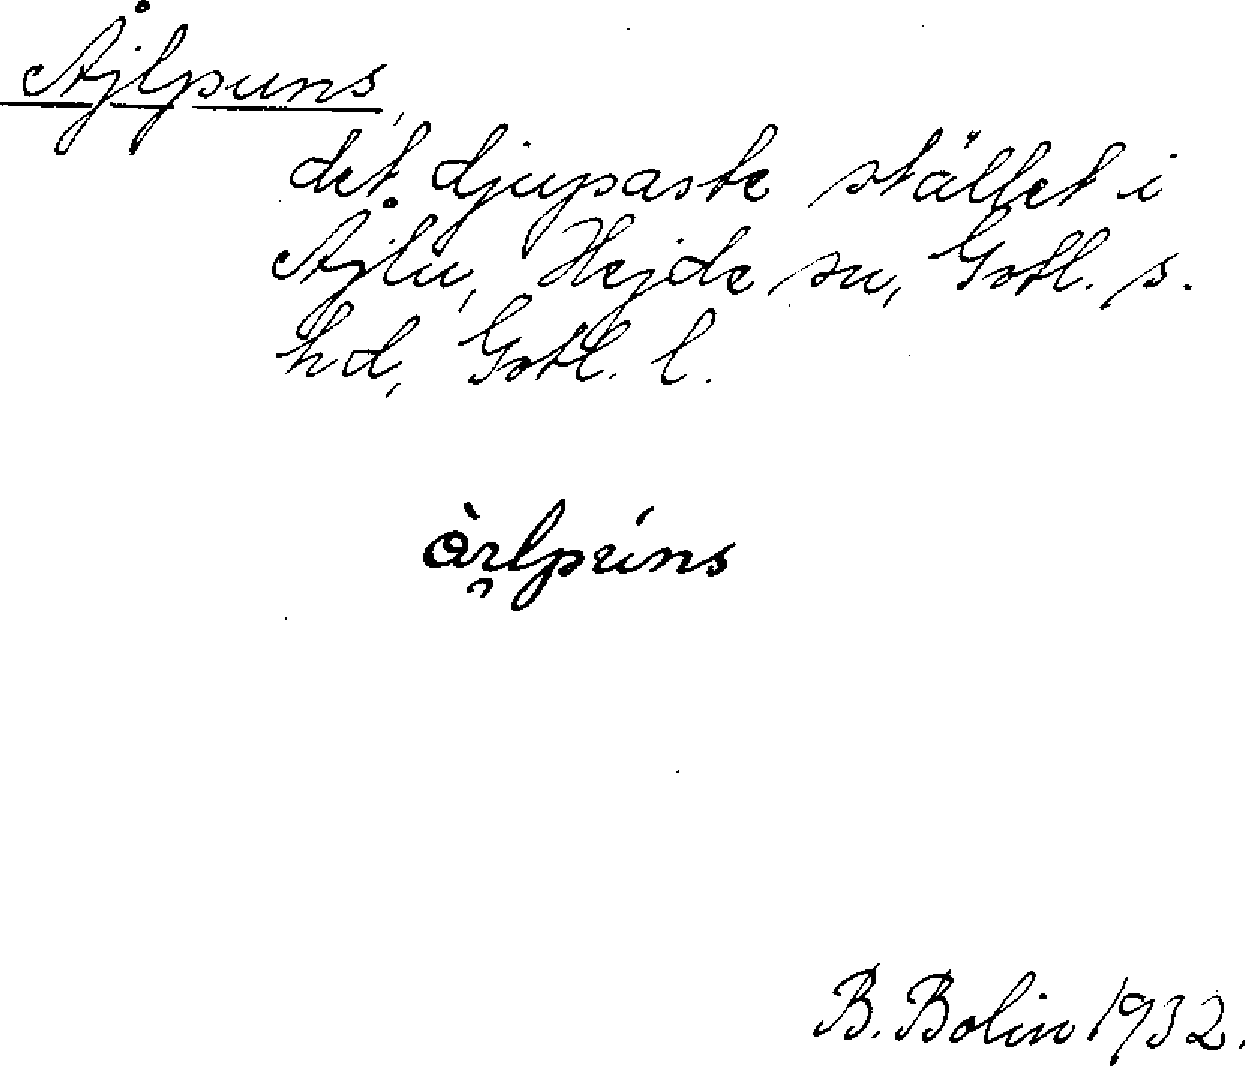 Åjlpuns,
det djupaste stället i
Åjlu, Hejde sn, Gotl. s.
hd, Gotl. l.
B. Bolin 1932.